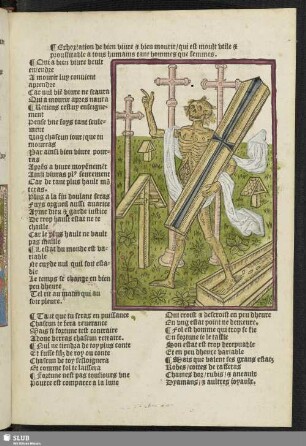 ¶ Exhortation de bien viure & bien mourir/qui est moult vtile &
prouffitable a tous humains tant hommes que femmes.
¶ Qui a bien viure veult
entendre
A mourir luy conuient
aprendre
Car nul biē viure ne scaura
Qui a mourir apres naura
¶ Retiens cest uy enseigne
ment
Pense vne foys tant seule
ment
Ung chascun iour/que en
mourras
Par ainsi bien viure pour
ras
Apres a viure moyēnemēt
Ains viuras plꝰ seurement
Car de tant plus hault mō
teras
Plus a la fin doulent seras
Fuys orgueil aussi auarice
Ayme dieu & garde iustice
De trop haulte estat ne te
chaille
Car le plus hault ne vault
pas maille
¶ Lestat du monde est va
riable
Ne cuyde nul quil soit esta
ble
Le temps se change en bien
peu dheure
Tel rit au matin qui au
soir pleure.
¶ Tant que tu seras en puissance
Chascun te fera reuerance
Mais se fortune test contraire
Adonc verras chascun retraire.
¶ Nul ne tiendra de toy plus conte
Et fusse filz de roy ou conte
Chascun de toy seslongnera
Et comme fol te laissera
¶ Fortune nest pas tousiours vne
Pource est comparee a la lune
Qui croist & descroist en peu dheure
En vng estat point ne demeure.
¶ Fol est homme qui trop se fie
En fortune & se rassie
Son estat est trop deceptuable
Et en peu dheure variable
¶ Mais que valent ses grans estatz
Robes/cottes de taffetas
Chaines dor/rubis & aneaulx
Dyamans/& aultres ioyaulx.
SLUB
DRESDEN